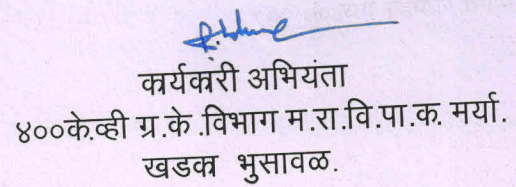 कार्यकारी अभियंता
४००के.व्ही ग्र.के .विभाग म.रा.वि.पा.क. मर्या.
खडका भुसावळ.